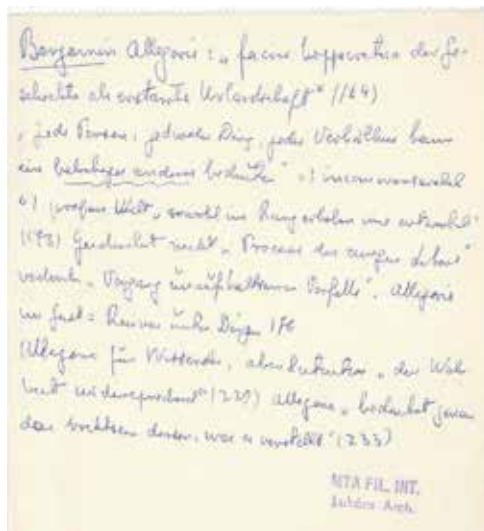 Benjamin Allegorie: „facies hippocratica der Ge-
schichte als erstarrte Urlandschaft" (164)
„jede Person, jedwedes Ding, jedes Verhältnis kann
ein beliebiges anderes bedeuten" a)
b) profane Welt „sowohl im Rang erhoben wie entwertet"
(193) Geschichte nicht „Process des ewigen Lebens"
vielmehr „Vorgang unaufhaltsamen Verfalls". Allegorie
im Dinge 176
Allegorie für aber „der
" (229) Allegorie „bedeutet genau
das Nichtsein dessen, was es vorstellt" (233)
MTA FIL. INT.
Lukács Arch.